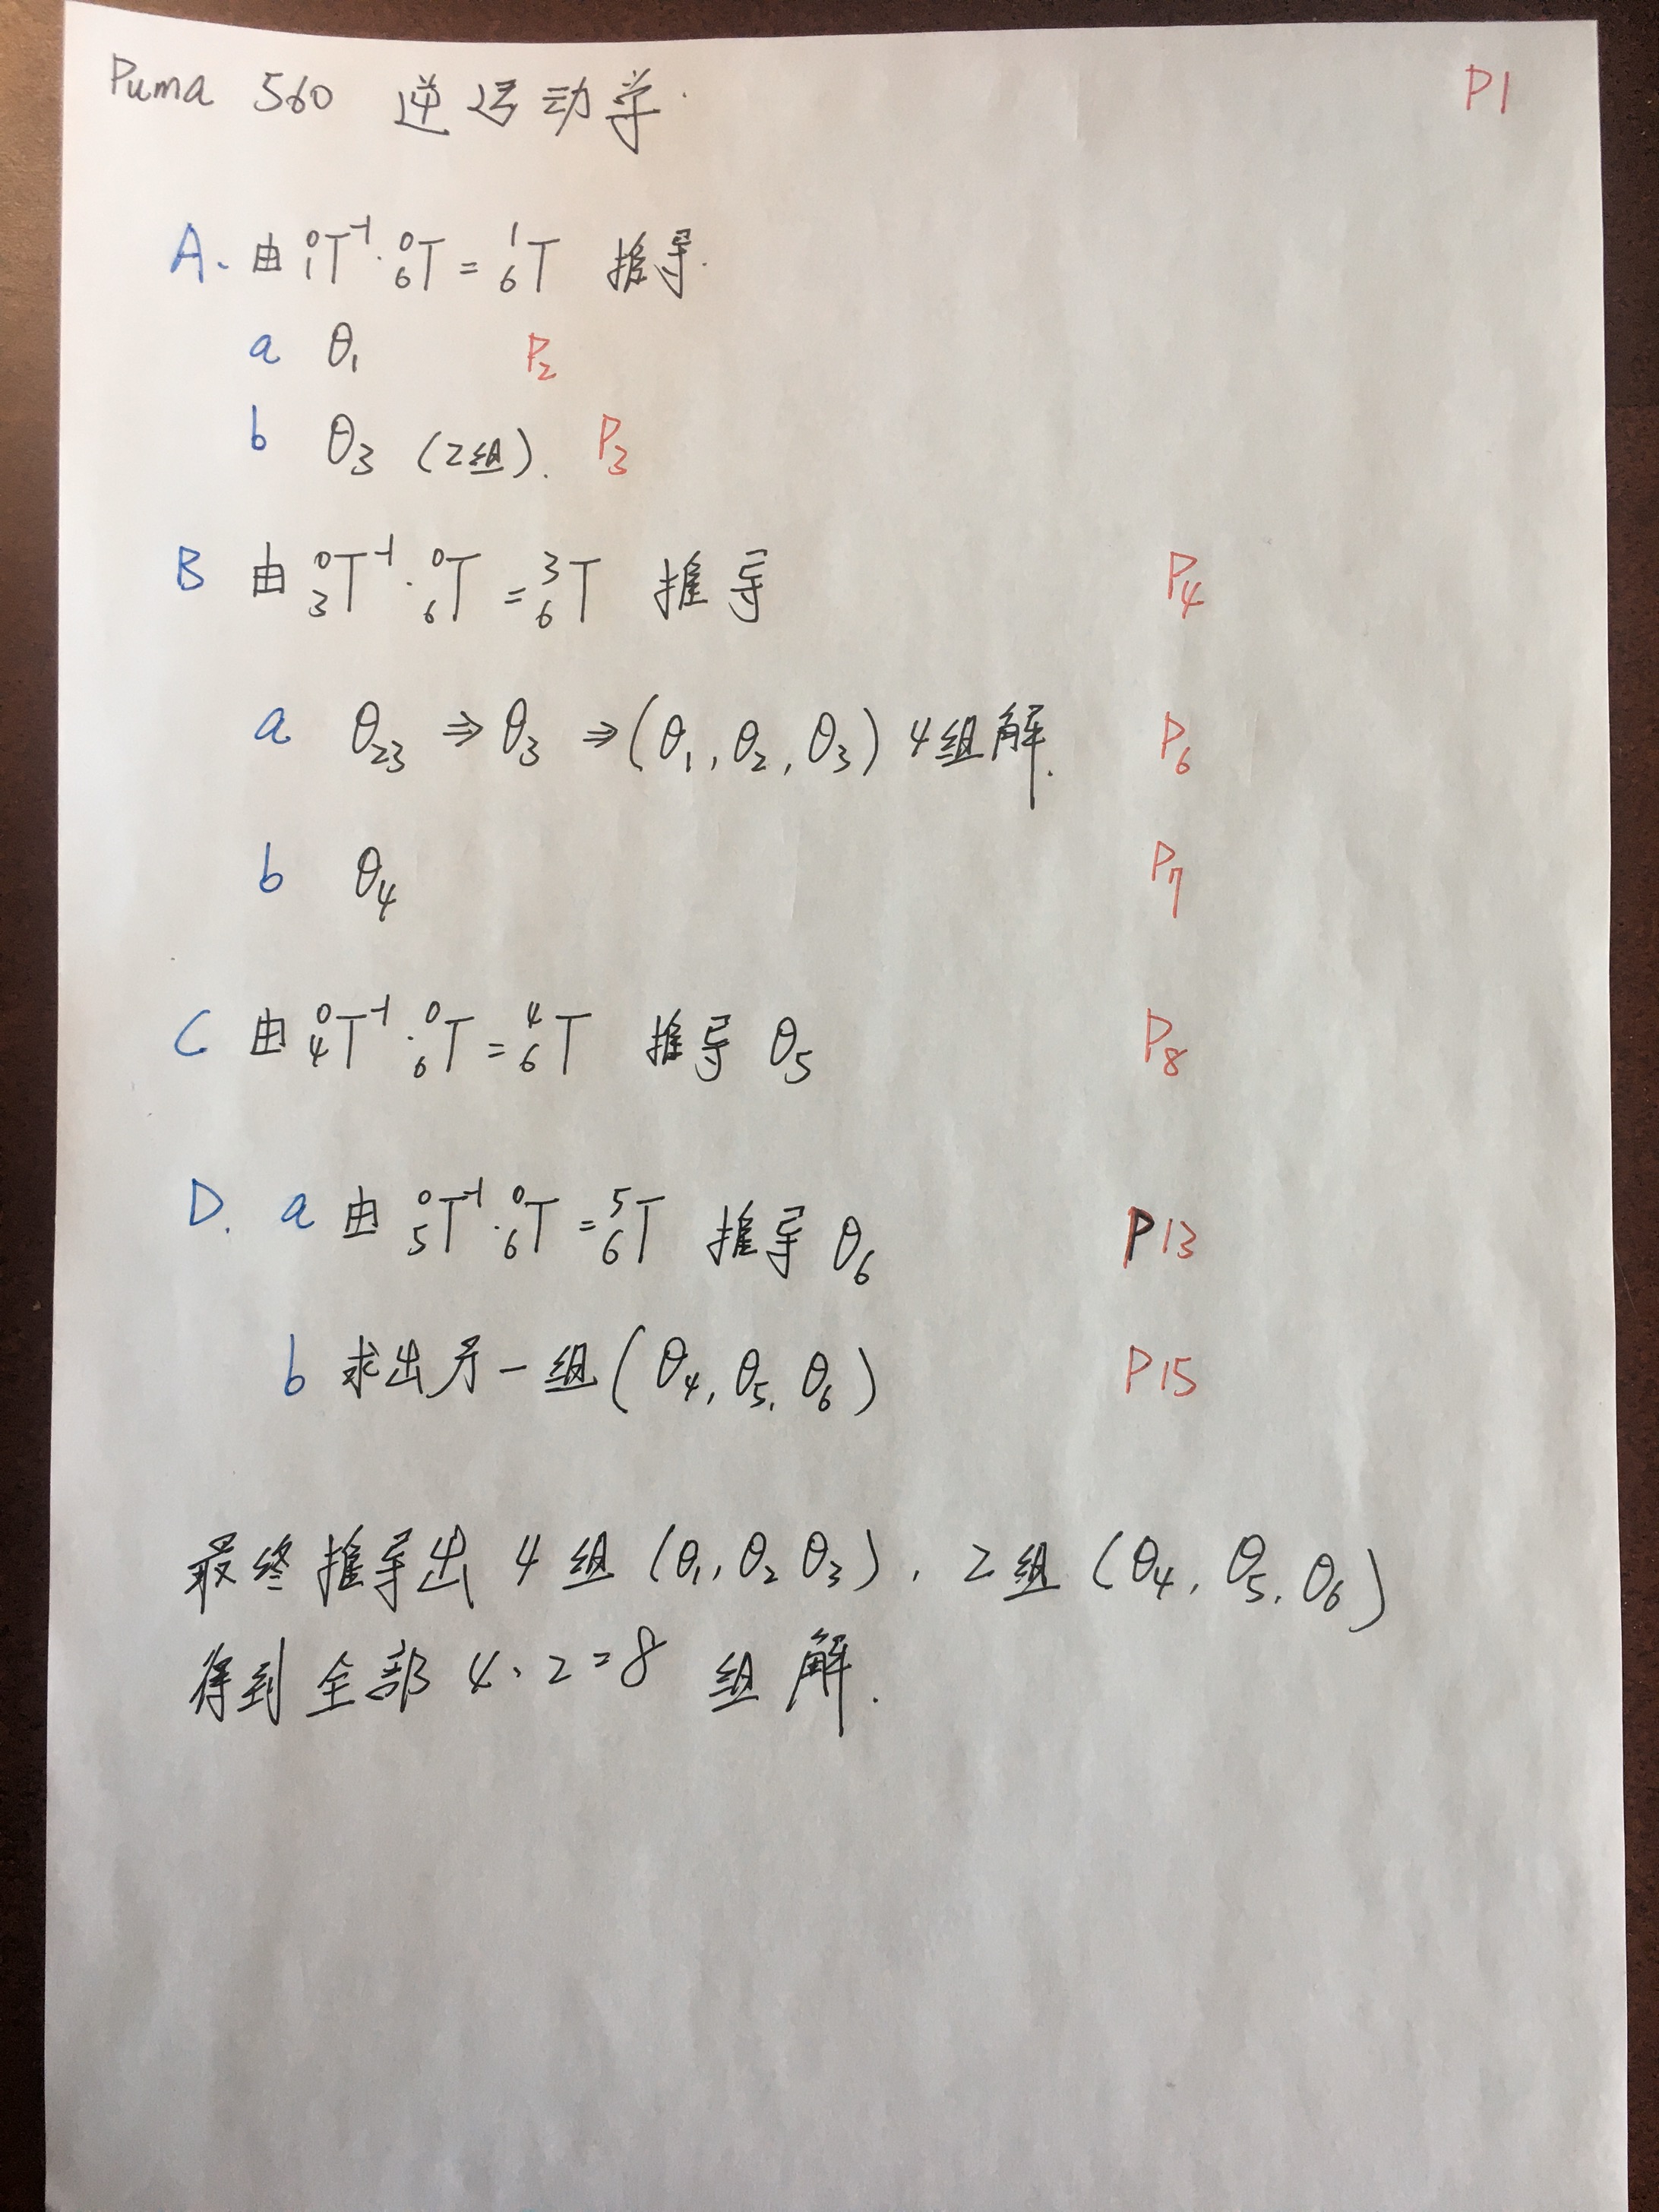 Puma 560 逆运动学. P1
A. 由 ⁰₁T⁻¹·⁰₆T = ¹₆T 推导.
a θ₁ P₂
b θ₃ (2组). P₃
B 由 ⁰₃T⁻¹·⁰₆T = ³₆T 推导 P₄
a θ₂₃ ⇒ θ₃ ⇒ (θ₁, θ₂, θ₃) 4组解. P₆
b θ₄ P₇
C 由 ⁰₄T⁻¹·⁰₆T = ⁴₆T 推导 θ₅ P₈
D. a 由 ⁰₅T⁻¹·⁰₆T = ⁵₆T 推导 θ₆ P13
b 求出另一组 (θ₄, θ₅, θ₆) P15
最终推导出 4组 (θ₁, θ₂ θ₃), 2组 (θ₄, θ₅, θ₆)
得到全部 4·2=8 组解.